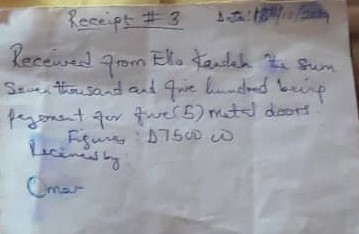 Receipt # 3 Date: 18/10/
Received from Ello the sum
Seven thousand and five hundred being
payment for five (5) metal doors.
Figures: D7500.00
Received by:
Omar